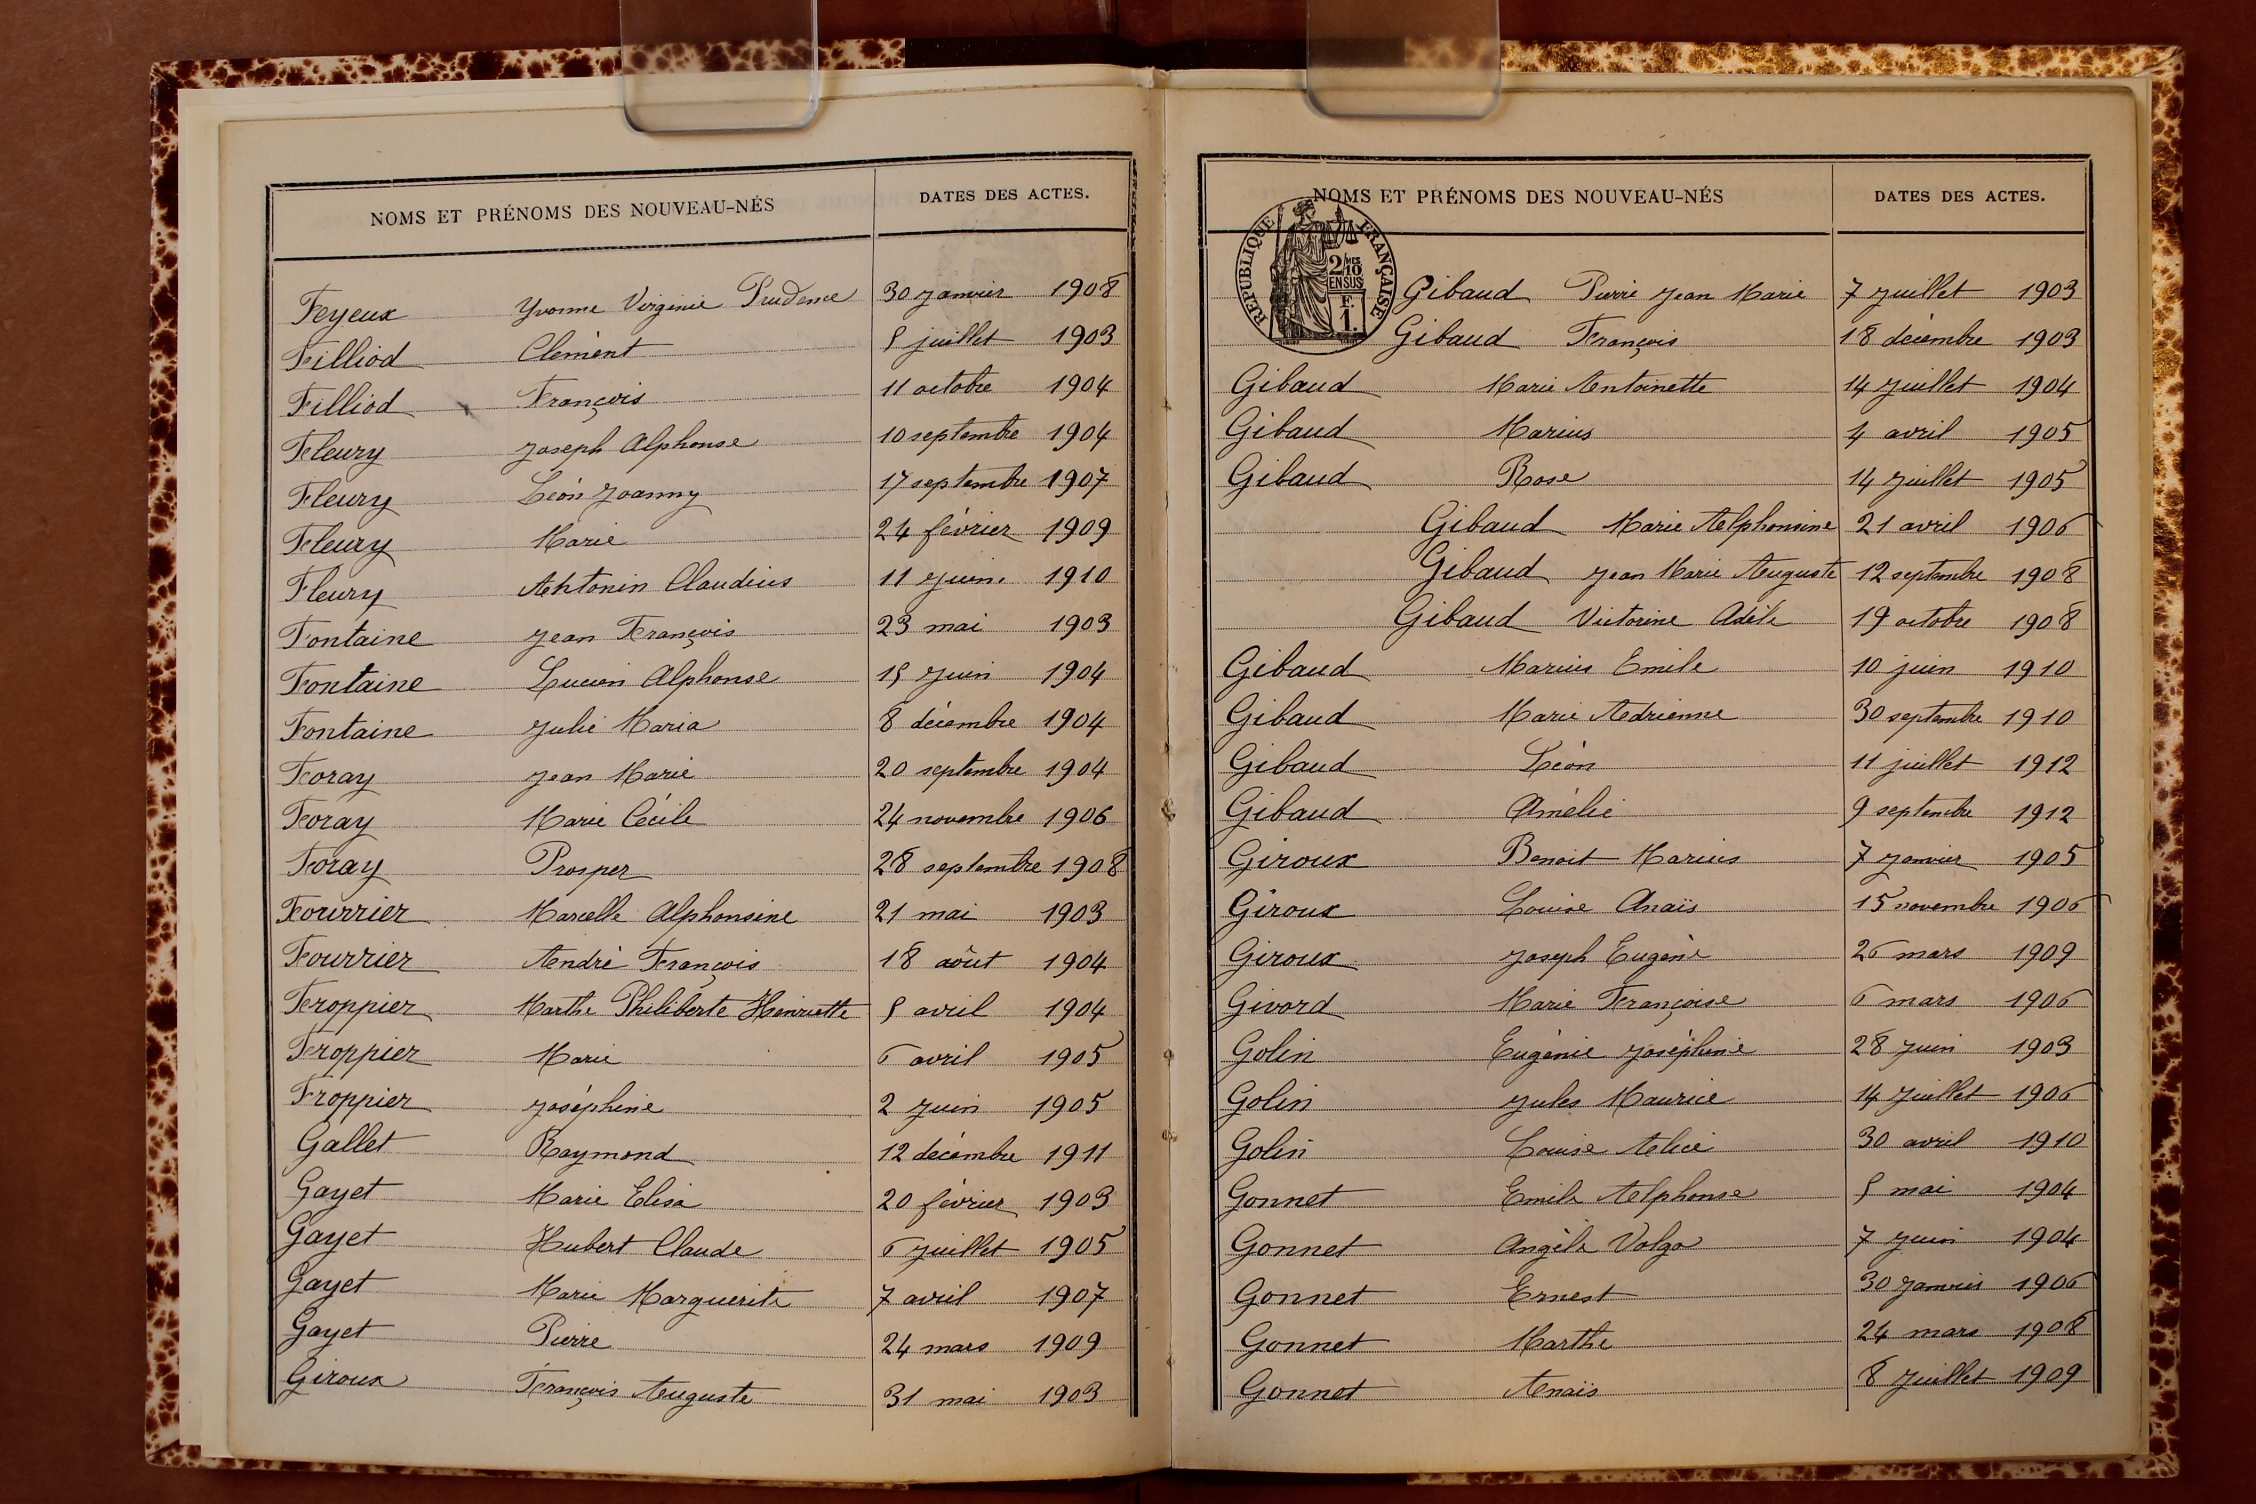 NOMS ET PRÉNOMS DES NOUVEAU-NÉS DATES DES ACTES.
Feyeux Yvonne Virginie Prudence 30 janvier 1908
Filliod Clément 5 juillet 1903
Filliod François 11 octobre 1904
Fleury Joseph Alphonse 10 septembre 1904
Fleury Léon Joanny 17 septembre 1907
Fleury Marie 24 février 1909
Fleury Antonin Claudius 11 juin 1910
Fontaine Jean François 23 mai 1903
Fontaine Lucien Alphonse 15 juin 1904
Fontaine Julie Maria 8 décembre 1904
Foray Jean Marie 20 septembre 1904
Foray Marie Cécile 24 novembre 1906
Foray Prosper 28 septembre 1908
Fourrier Marcelle Alphonsine 21 mai 1903
Fourrier André François 18 août 1904
Froppier Marthe Philiberte Henriette 5 avril 1904
Froppier Marie 6 avril 1905
Froppier Joséphine 2 juin 1905
Gallet Raymond 12 décembre 1911
Gayet Marie Elisa 20 février 1903
Gayet Hubert Claude 6 juillet 1905
Gayet Marie Marguerite 7 avril 1907
Gayet Pierre 24 mars 1909
Giroux François Auguste 31 mai 1903
NOMS ET PRÉNOMS DES NOUVEAU-NÉS DATES DES ACTES.
RÉPUBLIQUE FRANÇAISE
2/MES 10
EN SUS
F.
1.
Gibaud Pierre Jean Marie 7 juillet 1903
Gibaud François 18 décembre 1903
Gibaud Marie Antoinette 14 juillet 1904
Gibaud Marius 4 avril 1905
Gibaud Rose 14 juillet 1905
Gibaud Marie Alphonsine 21 avril 1906
Gibaud Jean Marie Auguste 12 septembre 1908
Gibaud Victorine Adèle 19 octobre 1908
Gibaud Marius Emile 10 juin 1910
Gibaud Marie Adrienne 30 septembre 1910
Gibaud Léon 11 juillet 1912
Gibaud Amélie 9 septembre 1912
Giroux Benoit Marius 7 janvier 1905
Giroux Louise Anaïs 15 novembre 1906
Giroux Joseph Eugène 26 mars 1909
Givord Marie Françoise 6 mars 1906
Golin Eugénie Joséphine 28 juin 1903
Golin Jules Maurice 14 juillet 1906
Golin Louise Alice 30 avril 1910
Gonnet Emile Alphonse 5 mai 1904
Gonnet Angèle Volga 7 juin 1904
Gonnet Ernest 30 janvier 1906
Gonnet Marthe 24 mars 1908
Gonnet Anaïs 8 juillet 1909